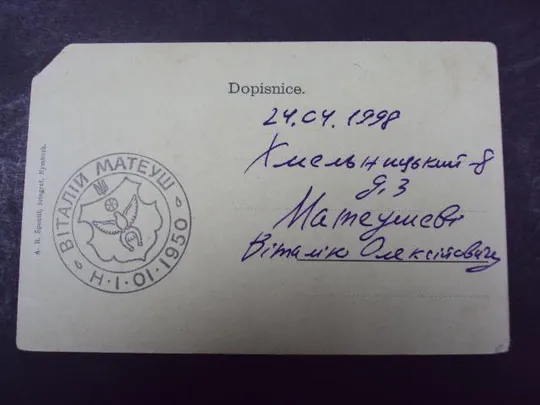 Dopisnice.
24.04.1998
Хмельницький-8
Д. 3
Матеушеві
Віталію Олексійовичу
ВІТАЛІЙ МАТЕУШ
Н·I·OI·1950